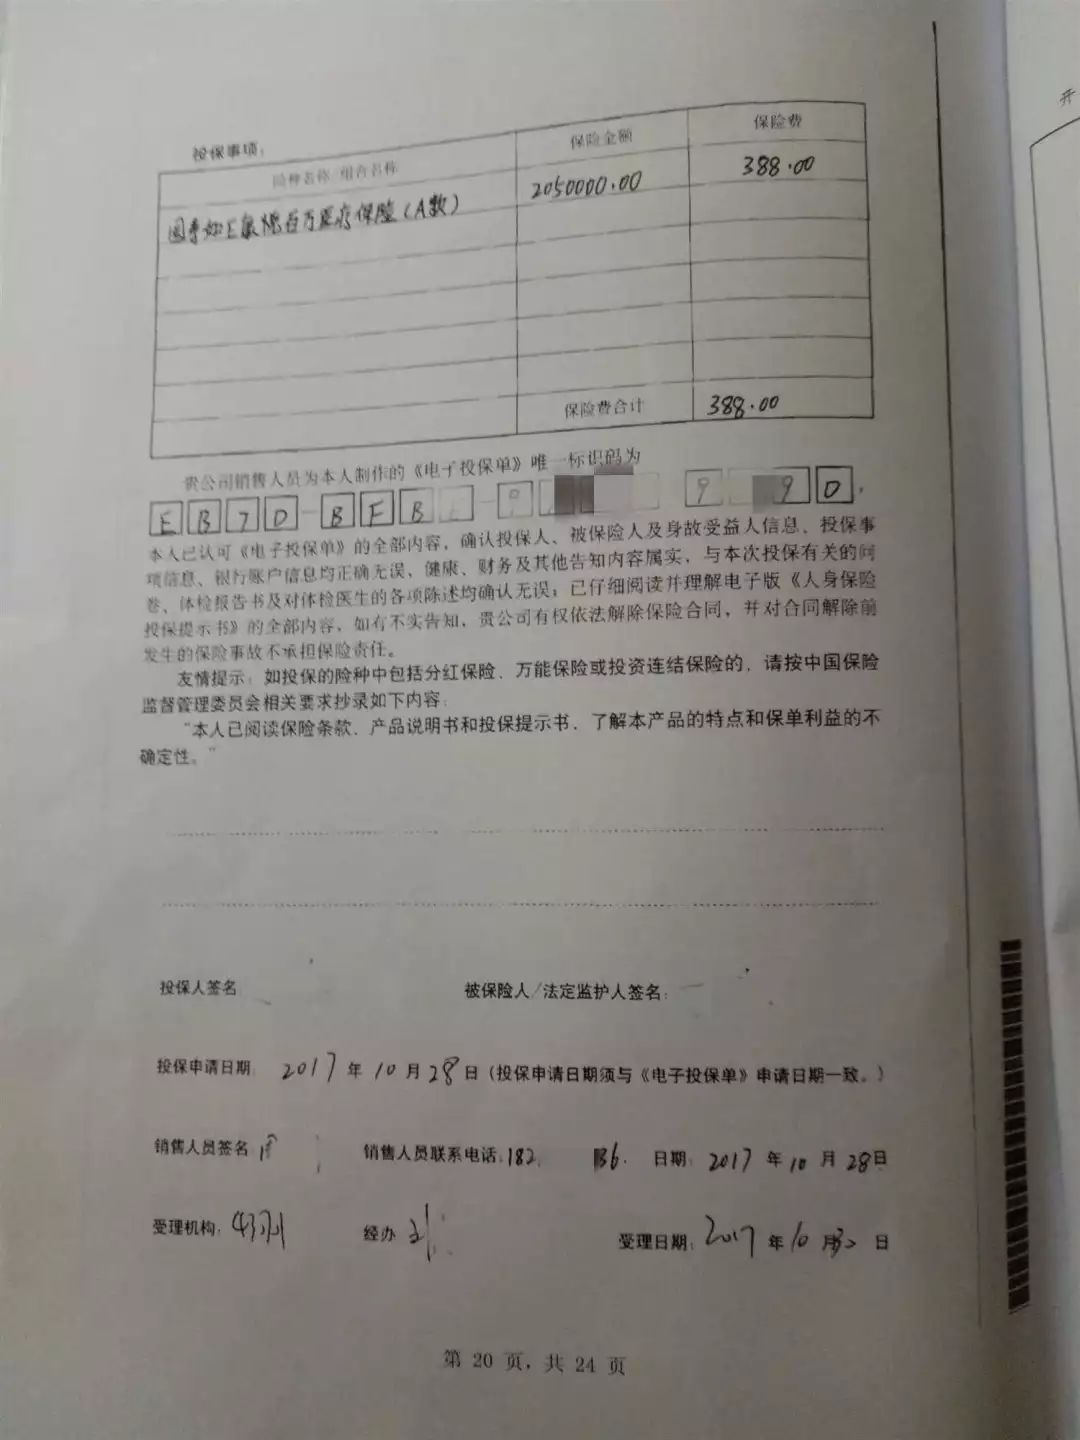 投保事项:
险种名称/组合名称 保险金额 保险费
国寿如E康悦百万医疗保险(A款) 2050000.00 388.00
保险费合计 388.00
贵公司销售人员为本人制作的《电子投保单》唯一标识码为
E B 7 D - B F B - 9 9 9 0,
本人已认可《电子投保单》的全部内容,确认投保人、被保险人及身故受益人信息、投保事
项信息、银行账户信息均正确无误,健康、财务及其他告知内容属实,与本次投保有关的问
卷、体检报告书及对体检医生的各项陈述均确认无误;已仔细阅读并理解电子版《人身保险
投保提示书》的全部内容,如有不实告知,贵公司有权依法解除保险合同,并对合同解除前
发生的保险事故不承担保险责任。
友情提示:如投保的险种中包括分红保险、万能保险或投资连结保险的,请按中国保险
监督管理委员会相关要求抄录如下内容:
"本人已阅读保险条款、产品说明书和投保提示书,了解本产品的特点和保单利益的不
确定性。"
投保人签名 被保险人/法定监护人签名:
投保申请日期: 2017 年 10 月 28 日(投保申请日期须与《电子投保单》申请日期一致。)
销售人员签名 销售人员联系电话:182 36. 日期: 2017 年 10 月 28 日
受理机构: 经办 受理日期: 2017 年 10 月 日
第 20 页,共 24 页
开